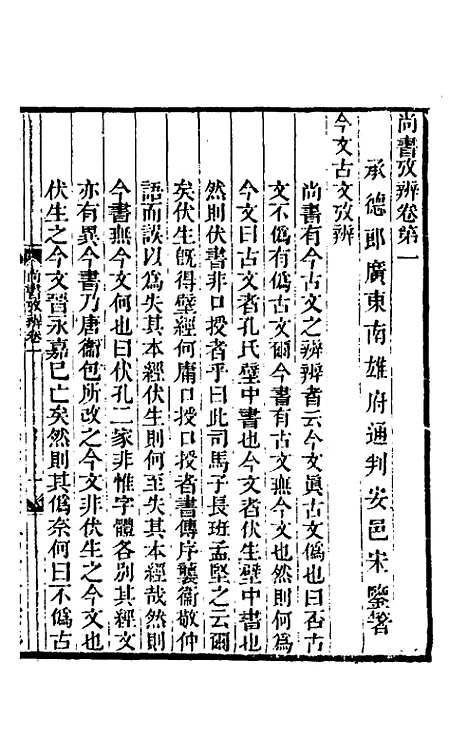 尚書攷辨卷第一
承德郎廣東南雄府通判安邑宋鑒著
今文古文攷辨
尚書有今古文之辨辨者云今文眞古文僞也曰否古
文不僞有僞古文爾今書有古文無今文也然則何爲
今文曰古文者孔氏壁中書也今文者伏生壁中書也
然則伏書非口授者乎曰此司馬子長班孟堅之云爾
矣伏生旣得壁經何庸口授口授者書傳序襲衞敬仲
語而誤以爲失其本經伏生則何至失其本經哉然則
今書無今文何也曰伏孔二家非惟字體各別其經文
亦有異今書乃唐衞包所改之今文非伏生之今文也
伏生之今文晉永嘉已亡矣然則其僞奈何曰不僞古
尚書攷辨卷一
一